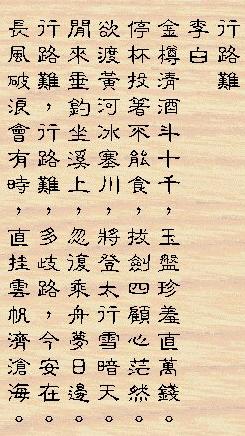 行路難
李白
金樽清酒斗十千，玉盤珍羞直萬錢。
停杯投箸不能食，拔劍四顧心茫然。
欲渡黃河冰塞川，將登太行雪暗天。
閒來垂釣坐溪上，忽復乘舟夢日邊。
行路難，行路難，多歧路，今安在。
長風破浪會有時，直挂雲帆濟滄海。